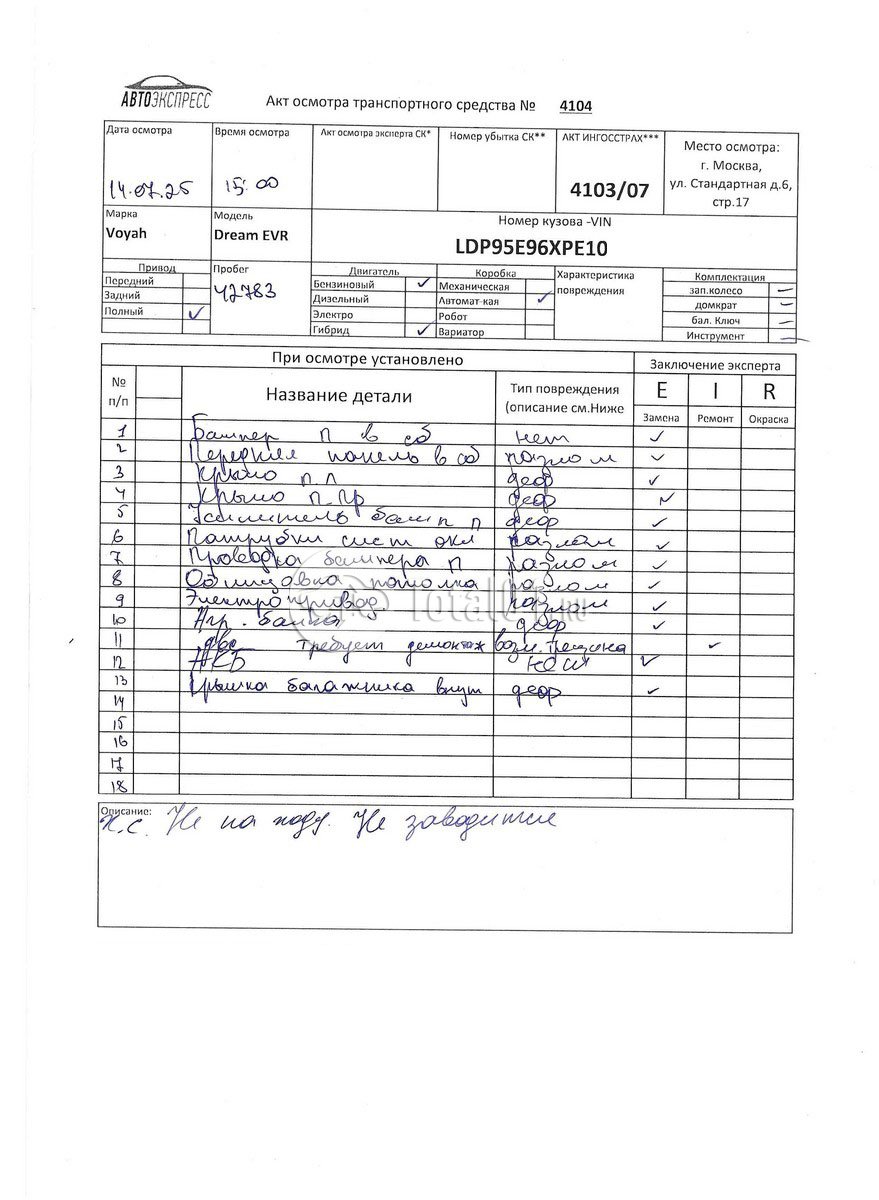 АВТОЭКСПРЕСС
Акт осмотра транспортного средства № 4104
Дата осмотра
14.07.25
Время осмотра
15:00
Акт осмотра эксперта СК*
Номер убытка СК**
АКТ ИНГОССТРАХ***
4103/07
Место осмотра:
г. Москва,
ул. Стандартная д.6,
стр.17
Марка
Voyah
Модель
Dream EVR
Номер кузова -VIN
LDP95E96XPE10
Привод
Передний
Задний
Полный ✓
Пробег
42783
Двигатель
Бензиновый ✓
Дизельный
Электро
Гибрид ✓
Коробка
Механическая
Автомат-кая ✓
Робот
Вариатор
Характеристика
повреждения
Комплектация
зап.колесо –
домкрат –
бал. Ключ –
Инструмент –
При осмотре установлено
Заключение эксперта
№
п/п
Название детали
Тип повреждения
(описание см.Ниже
E I R
Замена Ремонт Окраска
1 Бампер П в сб нет ✓
2 Передняя панель в сб разлом ✓
3 Крыло п л деф ✓
4 Крыло п пр деф ✓
5 Усилитель бамп п деф ✓
6 Патрубки сист охл разлом ✓
7 Проводка бампера п разлом ✓
8 Обшивка потолка разлом ✓
9 Электропривод разлом ✓
10 балка деф ✓
11 двс требует демонтаж возм. трещина ✓
12 АКБ нет ✓
13 Крышка багажника внут деф ✓
14
15
16
17
18
Описание:
Н.С. Не на ходу. Не заводится
Total01.RU